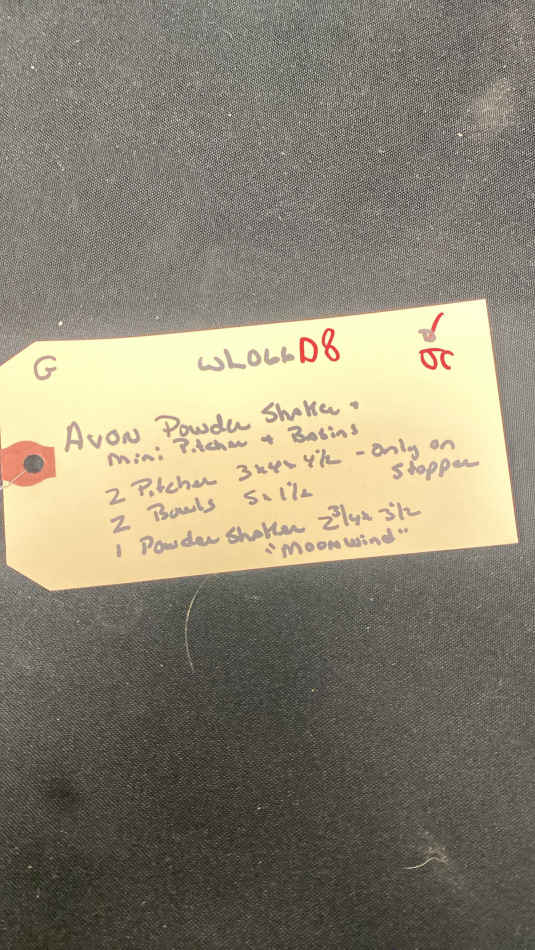 G WL066 D8
Avon Powder Shaker +
Mini Pitcher + Basins
2 Pitcher 3x4x 4½ - only on
stopper
2 Bowls 5x1½
1 Powder Shaker 2¾x 3½
"Moonwind"